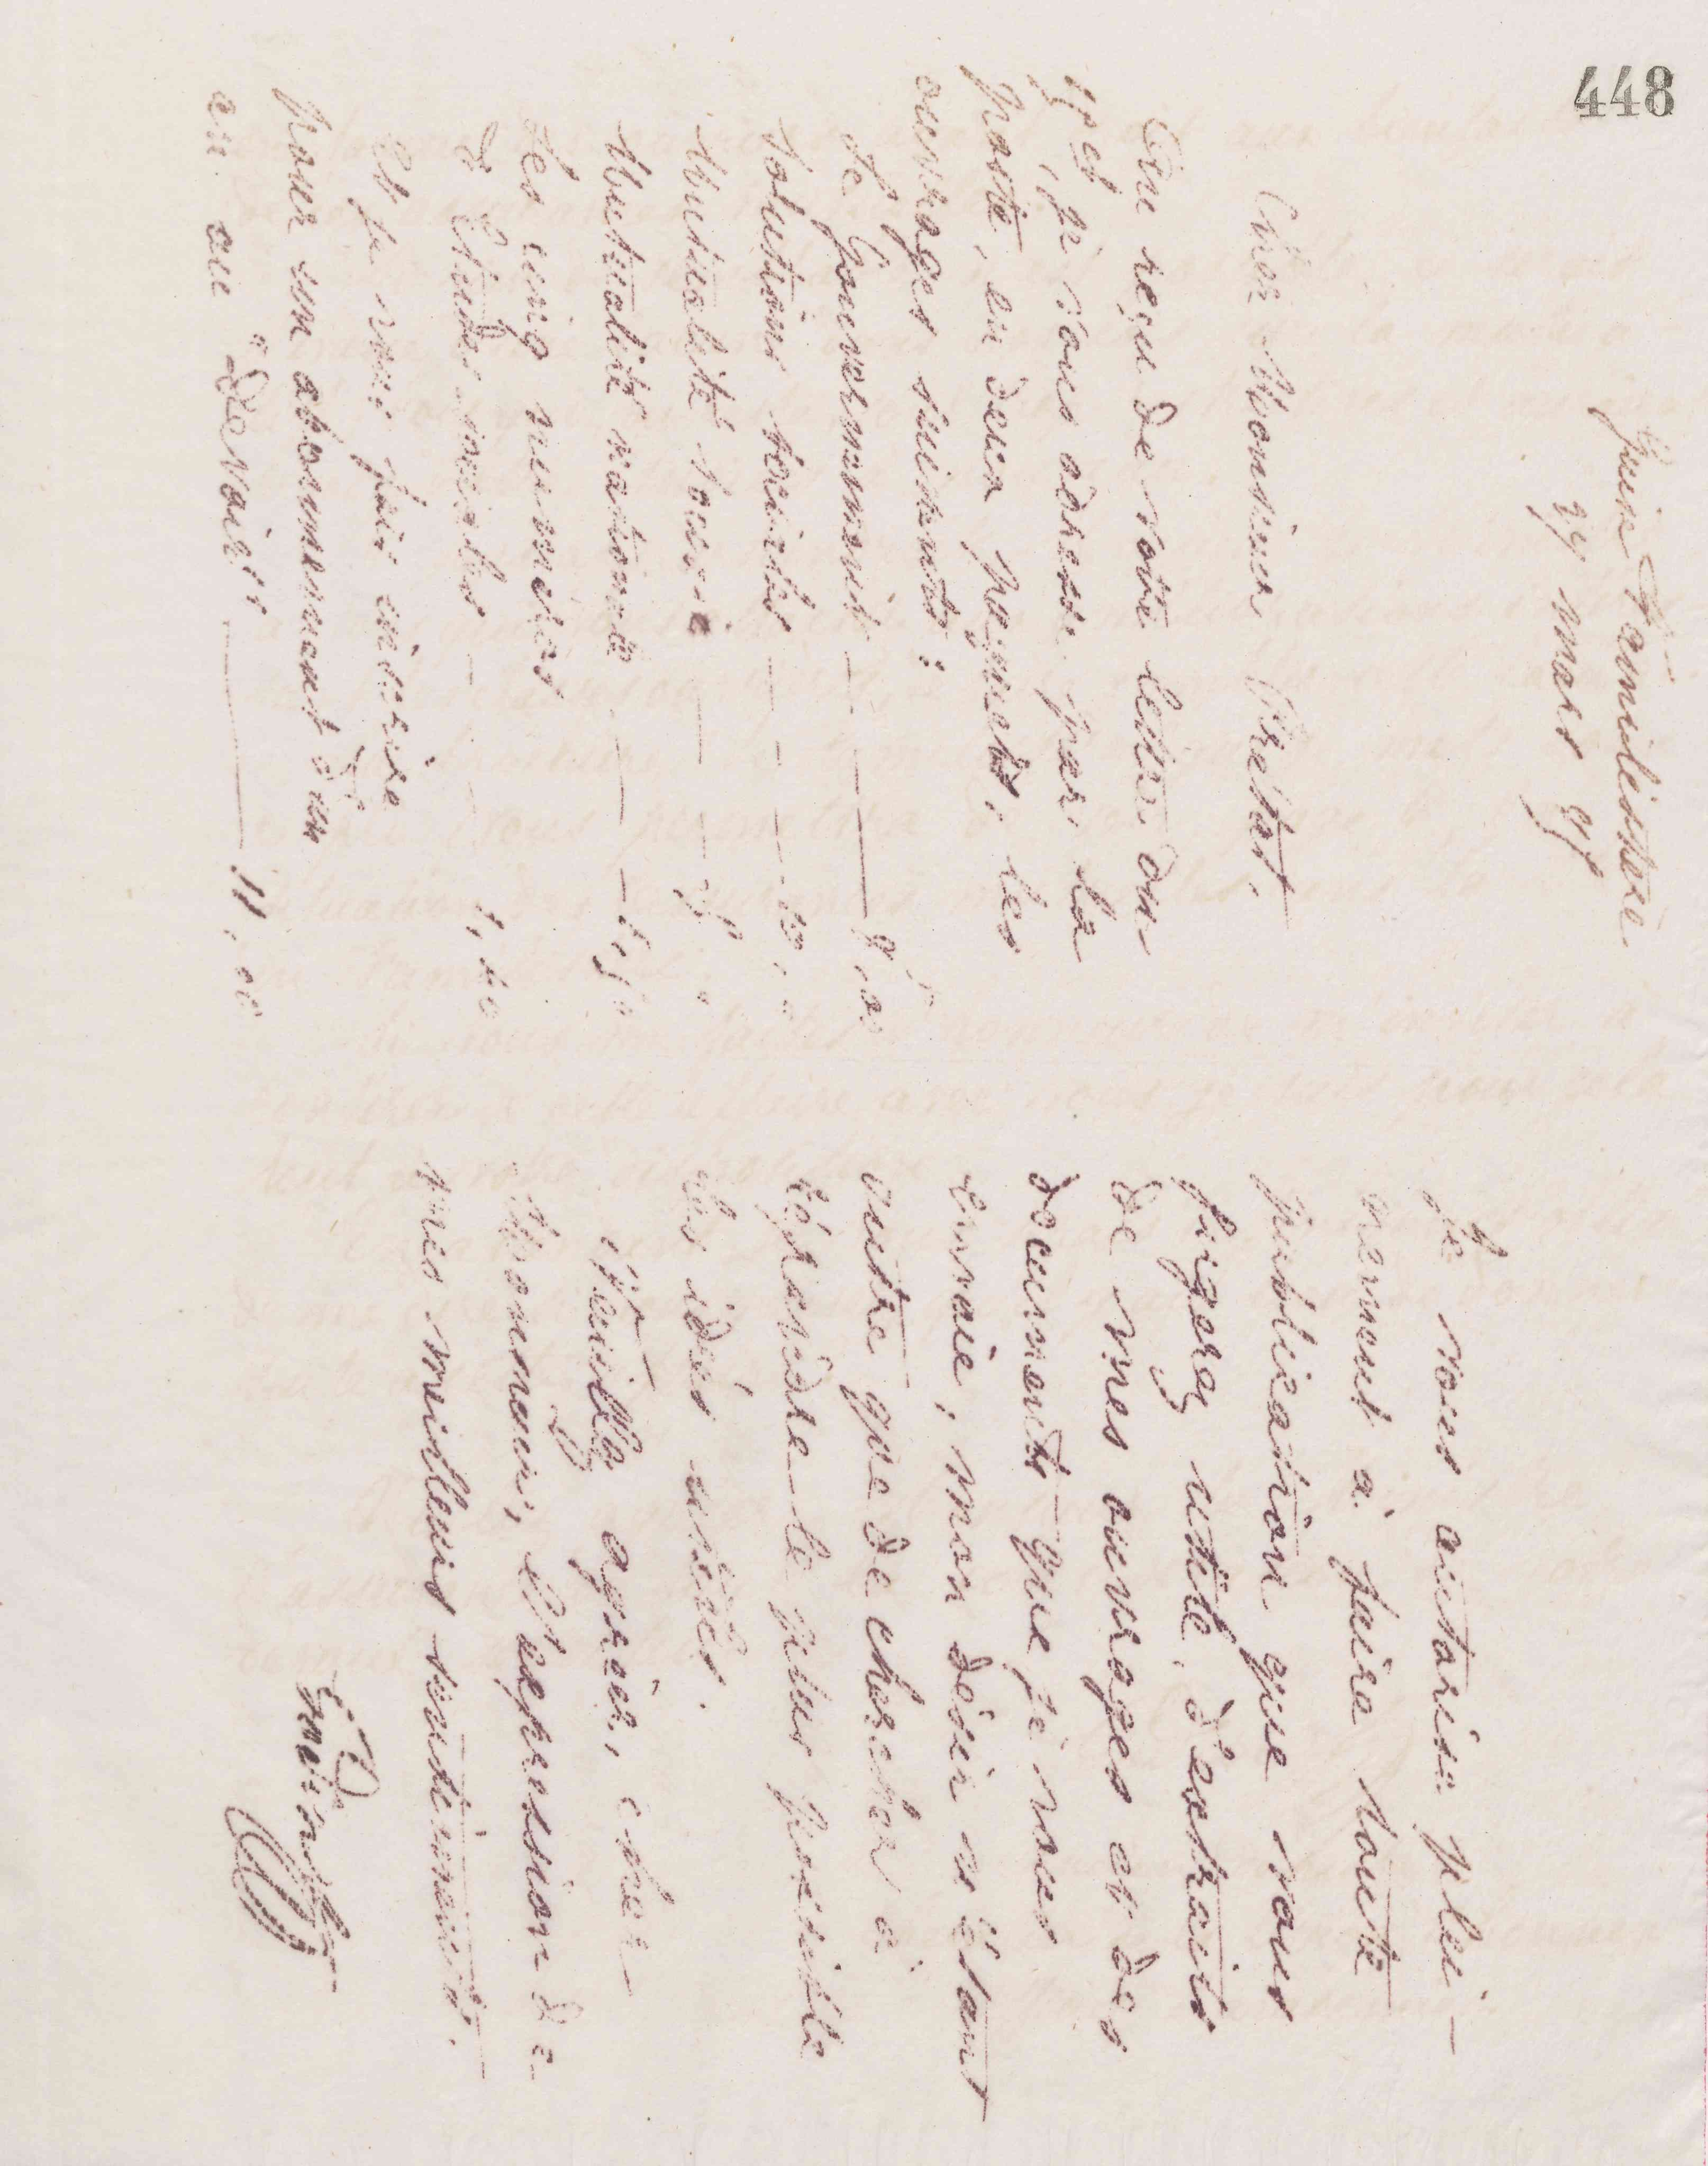 448
Guise Familistère
27 mars 87
Cher Monsieur Pretat.
Au reçu de votre lettre du
25 et, je vous adresse par la
poste, en deux paquets, les
ouvrages suivants :
Le Gouvernement — 8,00
Solutions sociales — 10,
Mutualité sociale —
Mutualité nationale — 1,50
Les cinq numéros
d'Etudes sociales — 1,40
Et je vous fais inscrire
pour un abonnement d'un
an au "Devoir" — 11,00
Je vous autorise plei-
nement à faire toute
publication que vous
jugerez utile, d'extraits
de mes ouvrages et des
documents que je vous
envoie, mon désir n'étant
autre que de chercher à
répandre le plus possible
les idées utiles.
Veuillez agréer, cher
Monsieur, l'expression de
mes meilleurs sentiments.
Godin